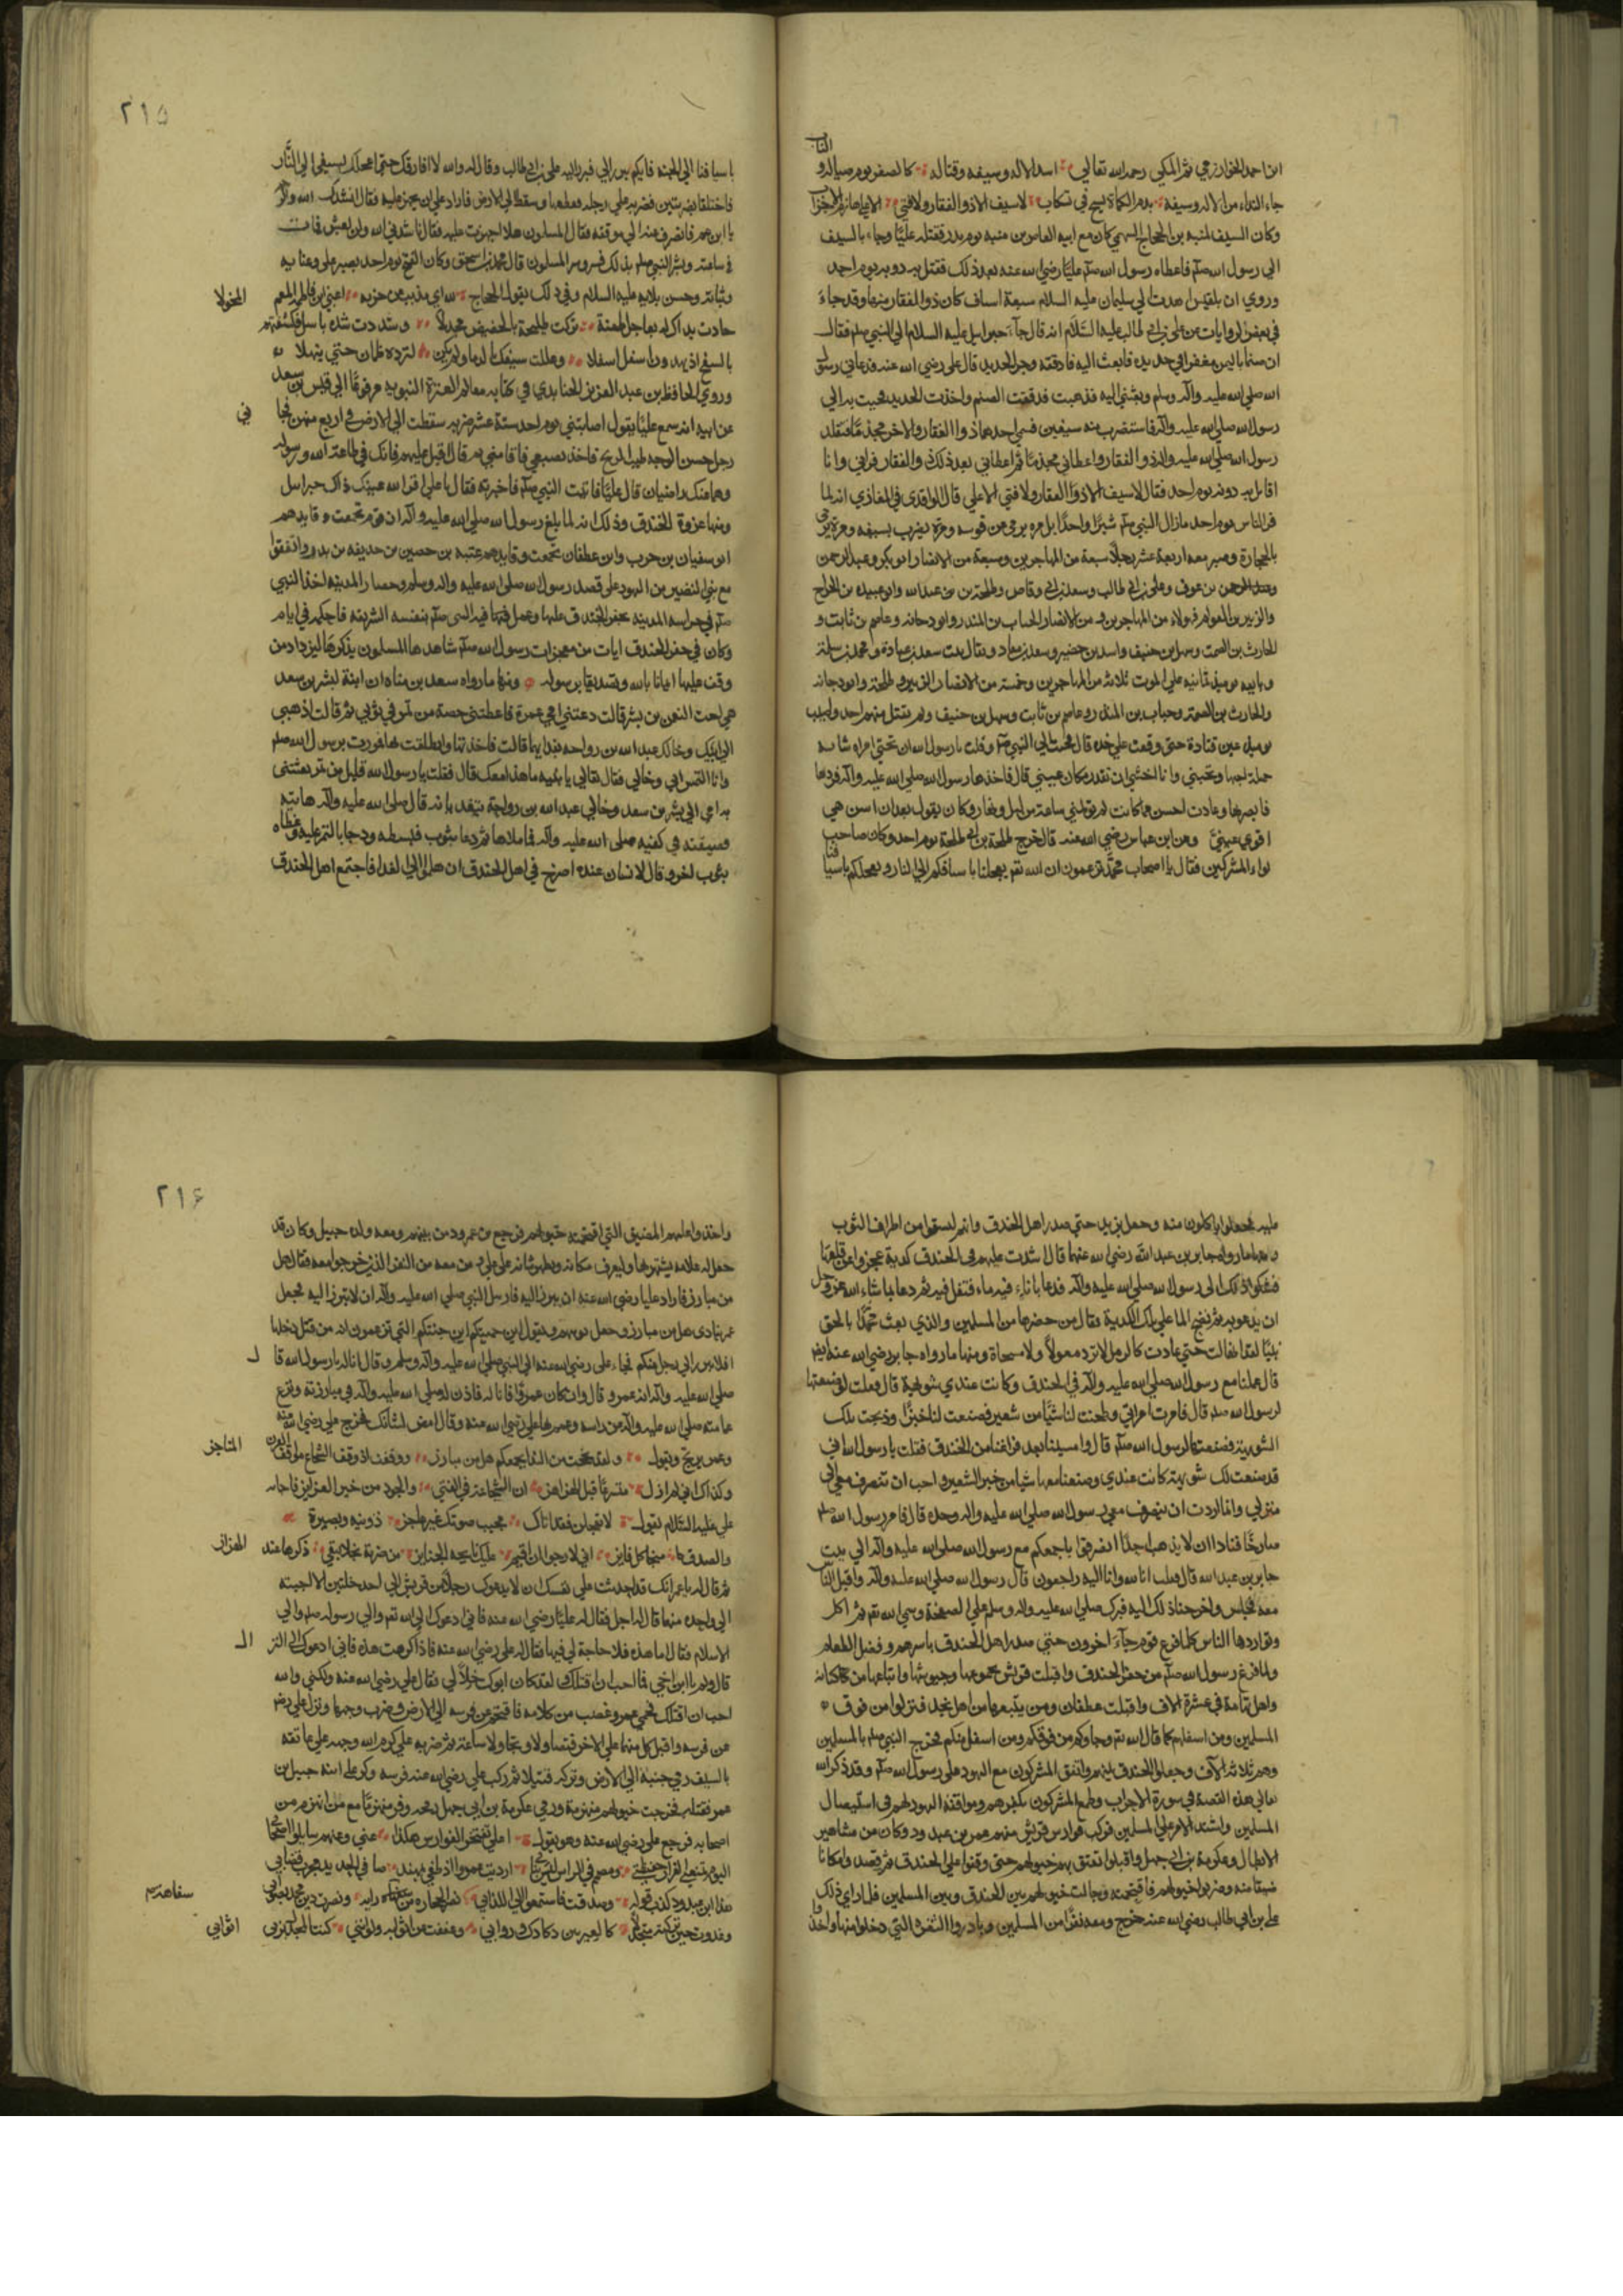 ابن احمد الخوارزمي ثم المكي رحمه الله تعالي اسد الاله وسيفه وقناته كالصفر يوم صياله و الناب
جاء النداء من الاله وسيفه بدم الكماة يسح في تسكاب لا سيف الا ذو الفقار ولا فتى الا علي هازم الاحزاب
وكان السيف لمنبه بن الحجاج السهمي كان مع ابنه العاص بن منبه يوم بدر فقتله عليا وجاء بالسيف
الي رسول الله صلم فاعطاه رسول الله صلم عليا رضي الله عنه بعد ذلك فقتل به دونه يوم احد
وروي ان بلقيس اهدت الي سليمان عليه السلام سبعة اسياف كان ذو الفقار منها وقد جاء
في بعض الروايات عن علي بن ابي طالب عليه السلام انه قال جاء جبرايل عليه السلام الي النبي صلم فقال
ان صنما باليمن مغفر في حديد فابعث اليه فادققه وخذ الحديد قال علي رضي الله عنه فدعاني رسول
الله صلي الله عليه واله وسلم وبعثني اليه فذهبت فدققت الصنم واخذت الحديد فجيت به الي
رسول الله صلي الله عليه واله فاستضرب منه سيفين فسمى احدهما ذوا الفقار والاخر مخذما فتقلد
رسول الله صلي الله عليه واله ذو الفقار واعطاني مخذما ثم اعطاني بعد ذلك ذو الفقار فراني وانا
اقاتل به دونه يوم احد فقال لا سيف الا ذوا الفقار ولا فتى الا علي قال الواقدي في المغازي انه لما
فر الناس يوم احد مازال النبي صلم شبرا واحدا بل مره يرمي عن قوسه ومرة يضرب بسيفه ومرة يرمي
بالحجارة وصبر معه اربعة عشر رجلا سبعة من المهاجرين وسبعة من الانصار ابو بكر وعبد الرحمن
بن عوف وعلي بن ابي طالب وسعد بن ابي وقاص وطلحة بن عبد الله وابو عبيده بن الجراح
والزبير بن العوام فهولاء من المهاجرين ومن الانصار الحباب بن المنذر وابو دجانه وعاصم بن ثابت و
الحارث بن الصمت وسهل بن حنيف واسيد بن حضير وسعد بن معاد ويقال بدت سعد بن عبادة ومحمد بن سلمة
وبايعه يوميذ ثمانيه علي الموت ثلاثه من المهاجرين وخمسة من الانصار الزبير وطلحة وابو دجانه
والحارث بن الصمة وحباب بن المنذر وعاصم بن ثابت وسهل بن حنيف ولم يقتل منهم احد واصيب
يوميذ عين قتادة حتى وقعت علي خده قال فجيت الي النبي صلم وقلت يا رسول الله ان تحتي امراه شابه
جميلة احبها وتحبني وانا اخشي ان تقذر مكان عيني قال فاخذها رسول الله صلي الله عليه واله فردها
فابصرها وعادت احسن مما كانت لم تولمني ساعة من ليل ونهار وكان يقول بعد ان اسن هي
اقوي عيني وعن ابن عباس رضي الله عنه قال خرج طلحة بن ابي طلحة يوم احد وكان صاحب
لواء المشركين فقال يا اصحاب محمد تزعمون ان الله تعم يعجلنا باسيافكم الي النار ويعجلكم باسيافنا
٢١٥
باسيافنا الي الجنة فايكم يبرز الي فبرز اليه علي بن ابي طالب وقال له والله لا افارقك حتى اعجلك بسيفي الي النار
فاختلفا بضربتين فضربه علي رجله فقطعها وسقط الي الارض فاراد علي ان يجهز عليه فقال انشدك الله والرحم
يا ابن عم فانصرف عنه الي موقفه فقال المسلمون هلا اجهزت عليه فقال ناشدني الله ولن يعيش فمات
في ساعته وبشر النبي صلم بذلك فسر وسر المسلمون قال محمد بن اسحق وكان الفتح يوم احد بصبر علي وعنايه
وثباته وحسن بلايه عليه السلام وفي ذلك يقول الحجاج لله اي مذبب عن حزبه اعني ابن فاطمة المعم المخولا
جادت يداك له بعاجل طعنة تركت طليحة بالحضيض مجدلا وشددت شدة باسل فكشفتهم
بالسفح اذ يهدون اسفل اسفلا وعللت سيفك بالدما ولم يكن لترده ظمان حتى ينهلا
وروي الحافظ بن عبد العزيز الجنابدي في كتابه معالم العترة النبويه مرفوعا الي قيس بن سعد
عن ابيه انه سمع عليا يقول اصابتني يوم احد ستة عشر ضربه سقطت الي الارض في اربع منهن فجا ني
رجل حسن الوجه طيب الريح فاخذ بضبعي فاقامني ثم قال اقبل عليهم فانك في طاعة الله ورسوله
وهما عنك راضيان قال عليا فاتيت النبي صلم فاخبرته فقال يا علي اقر الله عينك ذاك جبرايل
ومنها غزوة الخندق وذلك انه لما بلغ رسول الله صلي الله عليه واله ان قريش تجمعت وقايدهم
ابو سفيان بن حرب وان غطفان تجمعت وقايدهم عتبه بن حصين بن حذيفه بن بدر واتفقوا
مع بني النضير من اليهود علي قصد رسول الله صلي الله عليه واله وسلم وحصار المدينه اخذ النبي
صلم في حراسة المدينه بحفر الخندق عليها وعمل فيها فيه النبي صلم بنفسه الشريفه فاحكم في ايام
وكان في حفر الخندق ايات من معجزات رسول الله صلم شاهدها المسلمون يذكرها ليزداد من
وقف عليها ايمانا بالله وتصديقا برسوله ومنها ما رواه سعد بن مناه ان ابنة لبشر بن سعد
هي اخت النعمن بن بشر قالت دعتني امي عمرة فاعطتني حصة من تمر في ثوبي ثم قالت اذهبي
الي ابيك وخالك عبد الله بن رواحه بغدايهما قالت فاخذتها وانطلقت بها فمررت برسول الله صلم
وانا التمس ابي وخالي فقال تعالي يا بنيه ما هذا معك قال فقلت يا رسول الله قليل من تمر بعثتني
به امي الي بشر بن سعد وخالي عبد الله بن رواحة يتغديانه قال صلي الله عليه واله هاتيه
فصببته في كفيه صلي الله عليه واله فما ملاهما ثم دعا بثوب فبسطه ودحا بالتمر عليه وغطاه
بثوب اخر وقال لانسان عنده اصرخ في اهل الخندق ان هلموا الي الغدا فاجتمع اهل الخندق
عليه فجعلوا ياكلون منه وجعل يزيد حتى صدر اهل الخندق وانه ليسقط من اطراف الثوب
ومنها ما رواه جابر بن عبد الله رضي الله عنهما قال اشتدت عليهم في الخندق كدية عجزوا عن قلعها
فشكوا ذلك الي رسول الله صلي الله عليه واله فدعا باناء فيه ماء فتفل فيه ثم دعا بما شاء الله عز وجل
ان يدعو به ثم نضح الما علي تلك الكدية فقال من حضرها من المسلمين والذي بعث محمدا بالحق
نبيا لقد انهالت حتي عادت كالرمل لا ترد معولا ولا مسحاة ومنها ما رواه جابر رضي الله عنه ايضا
قال عملنا مع رسول الله صلي الله عليه واله في الخندق وكانت عندي شويهة قال فقلت لو صنعتها
لرسول الله صلم قال فامرت امراتي وطحنت لنا شيا من شعير فصنعت لنا خبزا وذبحت تلك
الشويهة فصنعتها لرسول الله صلم قال وامسينا بعد فراغنا من الخندق فقلت يا رسول الله اني
قد صنعت لك شويهة كانت عندي وصنعنا معها شيا من خبز الشعير واحب ان تنصرف معي الي
منزلي وانما اردت ان ينصرف معي رسول الله صلي الله عليه واله وحده قال فامر رسول الله صلم
صارخا فنادا ان لا يذهب احدا انصرفوا باجمعكم مع رسول الله صلي الله عليه واله الي بيت
جابر بن عبد الله قال فقلت انا لله وانا اليه راجعون قال رسول الله صلي الله عليه واله واقبل الناس
معه فجلس واخرجنا ذلك اليه فبرك صلي الله عليه واله وسلم علي الصحفة وسمي الله تعم ثم اكل
وتواردها الناس كلما فرغ قوم جاء اخرون حتي صدر اهل الخندق باسرهم وفضل الطعام
ولما فرغ رسول الله صلم من حفر الخندق واقبلت قريش بجموعها وجيوشها واتباعها من كنانه
واهل تهامة في عشرة الاف واقبلت غطفان ومن يتبعها من اهل نجد فنزلوا من فوق
المسلمين ومن اسفلهم كما قال الله تعم وجاوكم من فوقكم ومن اسفل منكم فخرج النبي صلم بالمسلمين
وهم ثلاثة الاف وجعلوا الخندق بينهم واتفق المشركون مع اليهود علي رسول الله صلم وقد ذكر الله
تعالي هذه القصة في سورة الاحزاب وطمع المشركون بكثرهم وموافقة اليهود لهم في استيصال
المسلمين واشتد الامر علي المسلمين فركب فوارس قريش منهم عمر بن عبد ود وكان من مشاهير
الابطال وعكرمة بن ابي جهل واقبلوا تعتق بهم خيولهم حتى وقفوا علي الخندق ثم قصدوا مكانا
ضيقا منه وضربوا خيولهم فاقتحمته وجالت خيولهم بين الخندق وبين المسلمين فلما راي ذلك
علي بن ابي طالب رضي الله عنه خرج ومعه نفرا من المسلمين وبادروا الثغرة التي دخلوا منها واخذوا
٢١٦
واخذوا عليهم المضيق التي اقتحمته خيولهم فرجع عمر بن عبد ود من بينهم ومعه ولده حسيل وكان قد
جعل له علامة يشتهر بها وليعرف مكانه ويظهر شانه علي علي ومن معه من النفر الذين خرجوا معه فقال هل
من مبارز فاراد عليا رضي الله عنه ان يبرز اليه فارسل النبي صلي الله عليه واله ان لا يبرز اليه فجعل
عمر ينادي هل من مبارز وجعل يوبخهم ويقول اين حميتكم اين جنتكم التي تزعمون انه من قتل دخلها
افلا يبرز الي رجل منكم فجاء علي رضي الله عنه الي النبي صلي الله عليه واله وسلم وقال انا له يا رسول الله قا ل
صلي الله عليه واله انه عمرو قال وان كان عمرو فانا له فاذن له صلي الله عليه واله في مبارزته ونزع
عمامته صلي الله عليه واله من راسه وعممها علي رضي الله عنه وقال امض لشانك فخرج علي رضي الله عنه
وعمر يرتجز ويقول ولقد بححت من الندا بجمعكم هل من مبارز ووقفت اذ وقف الشجاع مواقف القرن المناجز
وكذاك اني لم ازل متسرعا قبل الهزاهز ان الشجاعة في الفتي والجود من خير الغرايز فاجابه
علي عليه السلام يقول لا تعجلن فقد اتاك مجيب صوتك غير عاجز ذو نيه وبصيرة
والصدق منجا كل فايز اني لارجو ان اقيم عليك نايحة الجنايز من ضربة نجلا يبقي ذكرها عند الهزاز
ثم قال له يا عمر انك قد اخذت علي نفسك ان لا يدعوك رجلا من قريش الي احد خلتين الا اجبته
الي واحده منهما قال له اجل فقال له عليا رضي الله عنه فاني ادعوك الي الله تعم والي رسوله صلم والي
الاسلام فقال اما هذه فلا حاجة لي فيها فقال له علي رضي الله عنه فاذا كرهت هذه فاني ادعوك الي النز ال
قال ولم يا ابن اخي فما احب ان اقتلك لقد كان ابوك خلا لي فقال علي رضي الله عنه ولكني والله
احب ان اقتلك فحمي عمر وغضب من كلامه فاقتحم عن فرسه الي الارض وضرب وجهها ونزل علي رضي
عن فرسه واقبل كل منهما علي الاخر فتصاولا وتجاولا ساعة ثم ضربه علي كرم الله وجهه علي عاتقه
بالسيف رمي جنبه الي الارض وتركه قتيلا ثم ركب علي رضي الله عنه فرسه وكر علي ابنه حسيل بن
عمر فقتله فخرجت خيولهم منهزمة ورمي عكرمة بن ابي جهل رمحه وفر منهزما مع من انهزم من
اصحابه فرجع علي رضي الله عنه وهو يقول اعلي تفتخر الفوارس هكذا عني وعنهم سايلوا اصحابي
اليوم تمنعني الفرار حفيظتي ومصمم في الراس ليس بناب ارديت عمروا اذ طغي بمهند صافي الحديد مجرب قضابي
هذا ابن عبد ود كذب قوله وصدقت فاستمعوا الي الكذاب نصر الحجارة من سفاهة رايه ونصرت دين محمد بصوابي سفاهة
وغدوت حين تركته متجدلا كالعير بين دكادك وروابي وعففت عن اثوابه ولو انني كنت المجدل بزني اثوابي